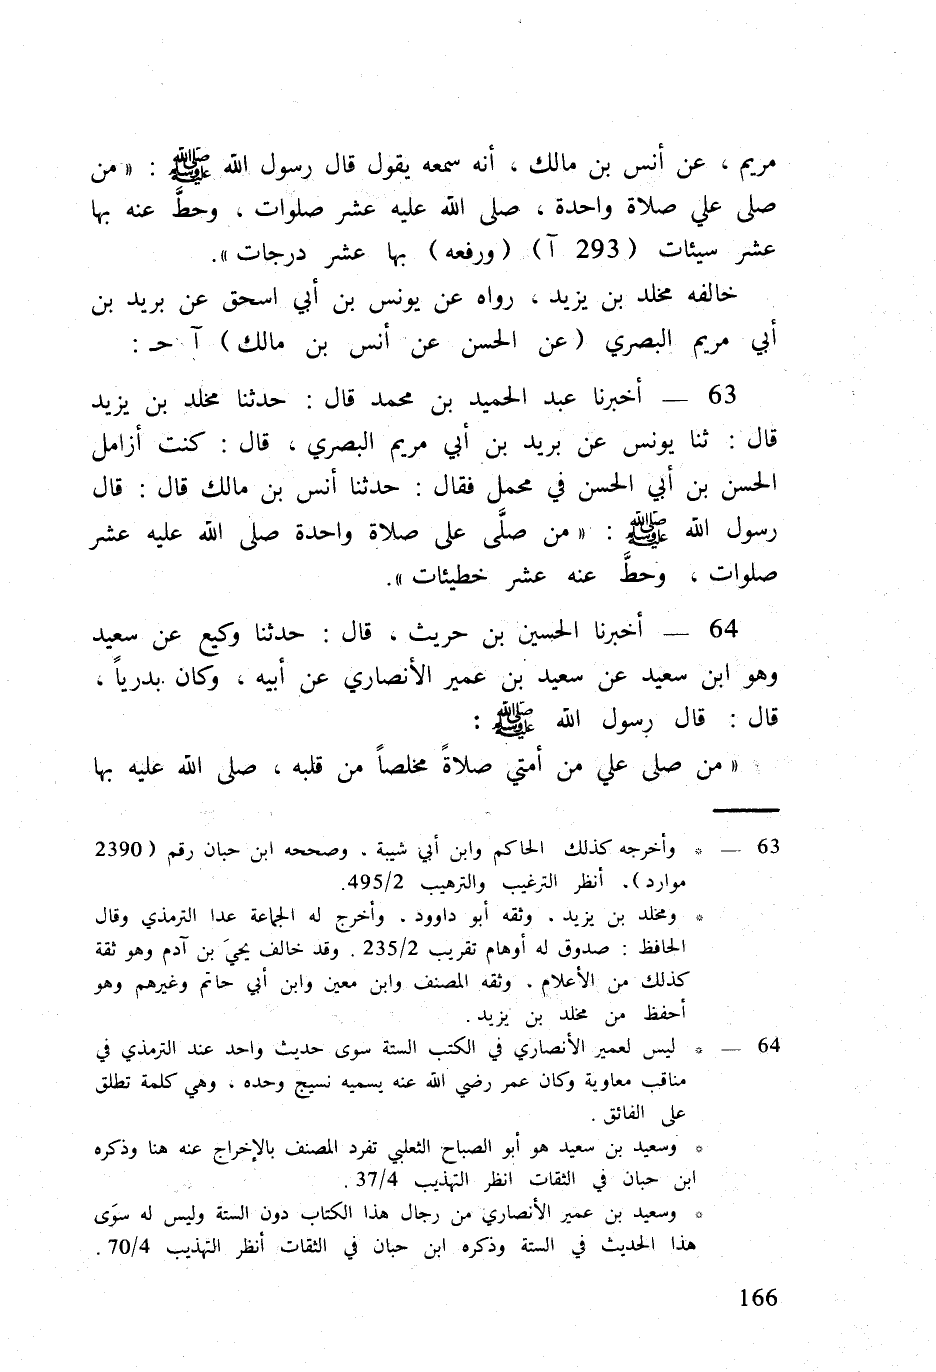 مريم ، عن أنس بن مالك ، أنه سمعه يقول قال رسول الله ﷺ : « من
صلى علي صلاة واحدة ، صلى الله عليه عشر صلوات ، وحطَّ عنه بها
عشر سيئات ( 293 آ ) ( ورفعه ) بها عشر درجات ».
خالفه مخلد بن يزيد ، رواه عن يونس بن أبي اسحق عن بريد بن
أبي مريم البصري ( عن الحسن عن أنس بن مالك ) آ حـ :
63 — أخبرنا عبد الحميد بن محمد قال : حدثنا مخلد بن يزيد
قال : ثنا يونس عن بريد بن أبي مريم البصري ، قال : كنت أزامل
الحسن بن أبي الحسن في محمل فقال : حدثنا أنس بن مالك قال : قال
رسول الله ﷺ : « من صلَّى علي صلاة واحدة صلى الله عليه عشر
صلوات ، وحطَّ عنه عشر خطيئات ».
64 — أخبرنا الحسين بن حريث ، قال : حدثنا وكيع عن سعيد
وهو ابن سعيد عن سعيد بن عمير الأنصاري عن أبيه ، وكان بدرياً ،
قال : قال رسول الله ﷺ :
« من صلى علي من أمتي صلاةً مخلصاً من قلبه ، صلى الله عليه بها
63 — * وأخرجه كذلك الحاكم وابن أبي شيبة . وصححه ابن حبان رقم ( 2390
موارد ). أنظر الترغيب والترهيب 495/2.
* ومخلد بن يزيد . وثقه أبو داوود . وأخرج له الجماعة عدا الترمذي وقال
الحافظ : صدوق له أوهام تقريب 235/2 . وقد خالف يحيَ بن آدم وهو ثقة
كذلك من الأعلام . وثقه المصنف وابن معين وابن أبي حاتم وغيرهم وهو
أحفظ من مخلد بن يزيد .
64 — * ليس لعمير الأنصاري في الكتب الستة سوى حديث واحد عند الترمذي في
مناقب معاوية وكان عمر رضي الله عنه يسميه نسيج وحده ، وهي كلمة تطلق
على الفائق .
* وسعيد بن سعيد هو أبو الصباح الثعلبي تفرد المصنف بالإخراج عنه هنا وذكره
ابن حبان في الثقات انظر التهذيب 37/4 .
* وسعيد بن عمير الأنصاري من رجال هذا الكتاب دون الستة وليس له سوَى
هذا الحديث في الستة وذكره ابن حبان في الثقات أنظر التهذيب 70/4 .
166